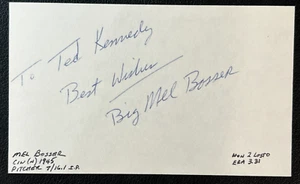 To Ted Kennedy
Best Wishes
Big Mel Bosser
MEL BOSSER
CIN (N) 1945
PITCHER 7/16.1 I.P.
WON 2 LOST 0
ERA 3.31